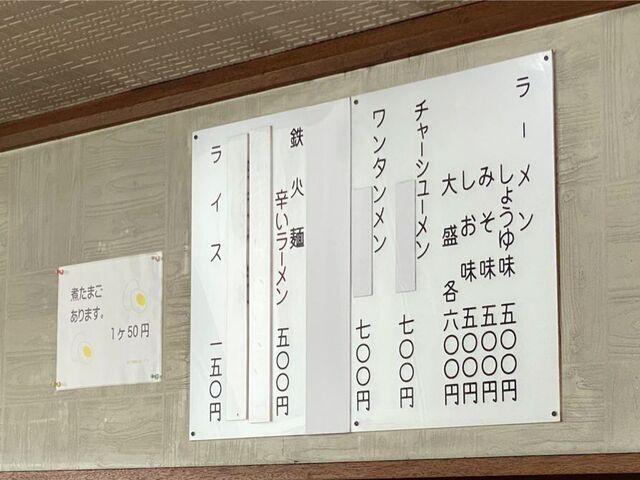 ラーメン
しょうゆ味 五〇〇円
みそ味 五〇〇円
しお味 五〇〇円
大盛各六〇〇円
チャーシューメン 七〇〇円
ワンタンメン 七〇〇円
鉄火麺
辛いラーメン 五〇〇円
ライス 一五〇円
煮たまご
あります。
1ケ50円